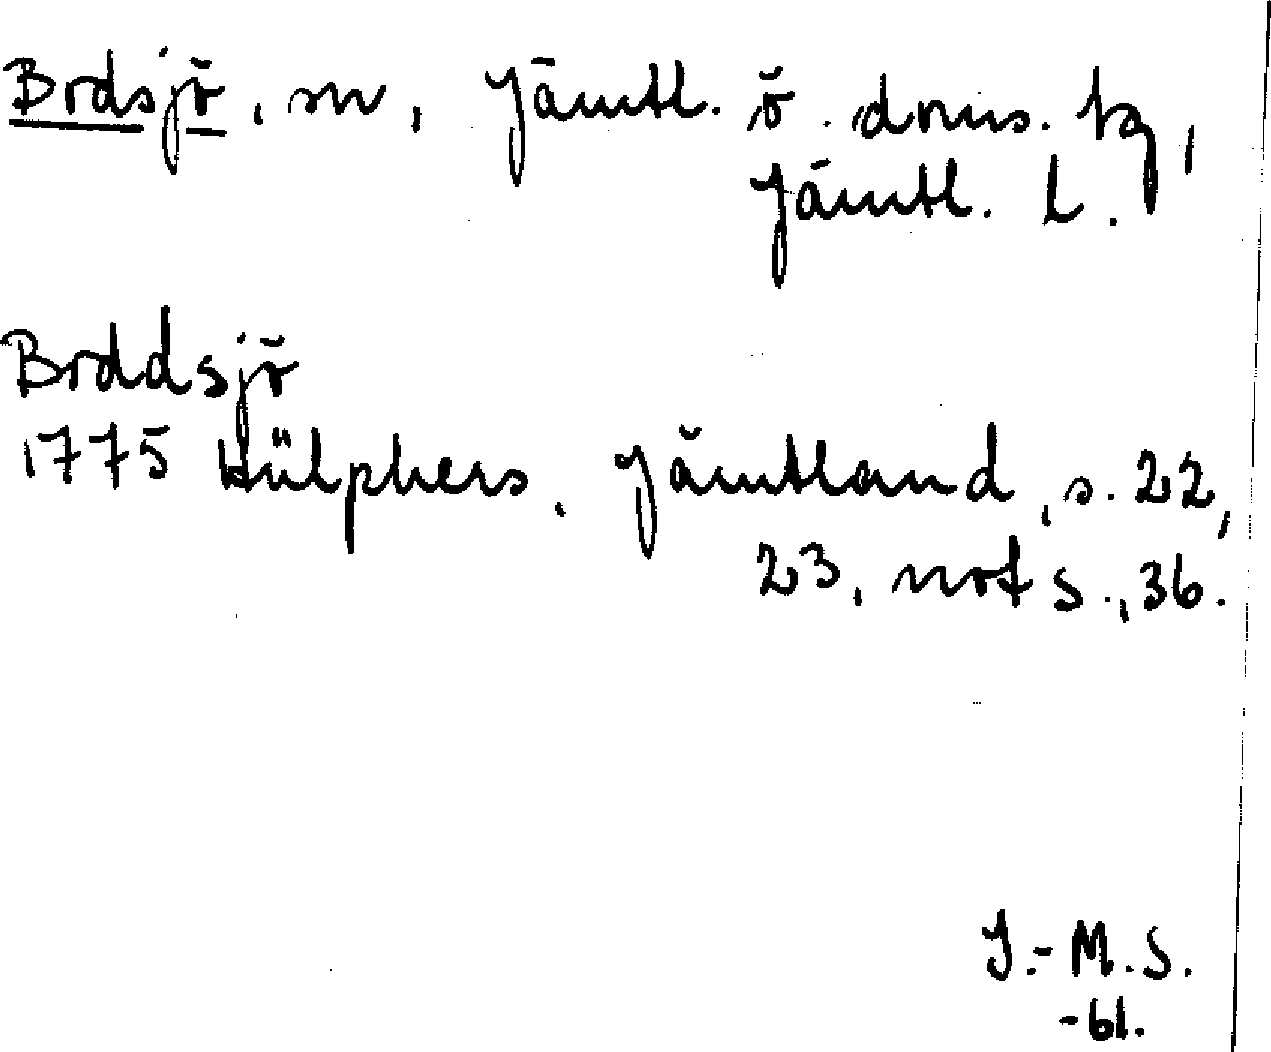 Bodsjö, sn, Jämtl. ö. doms. tg,
Jämtl. L.
Boddsjö
1775 Hülphers, Jämtland, s. 22,
23, not s., 36.
J.-M.S.
-61.